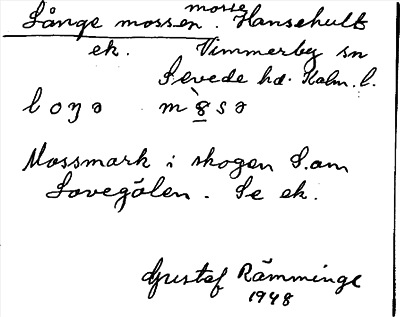 mosse
Långe mossen. Hansehults
ek. Vimmerby sn
Sevede hd. Kalm. l.
loŋə m8̀sə
Mossmark i skogen S.om
Lovegölen. Se ek.
Gustaf Rämminge
1948